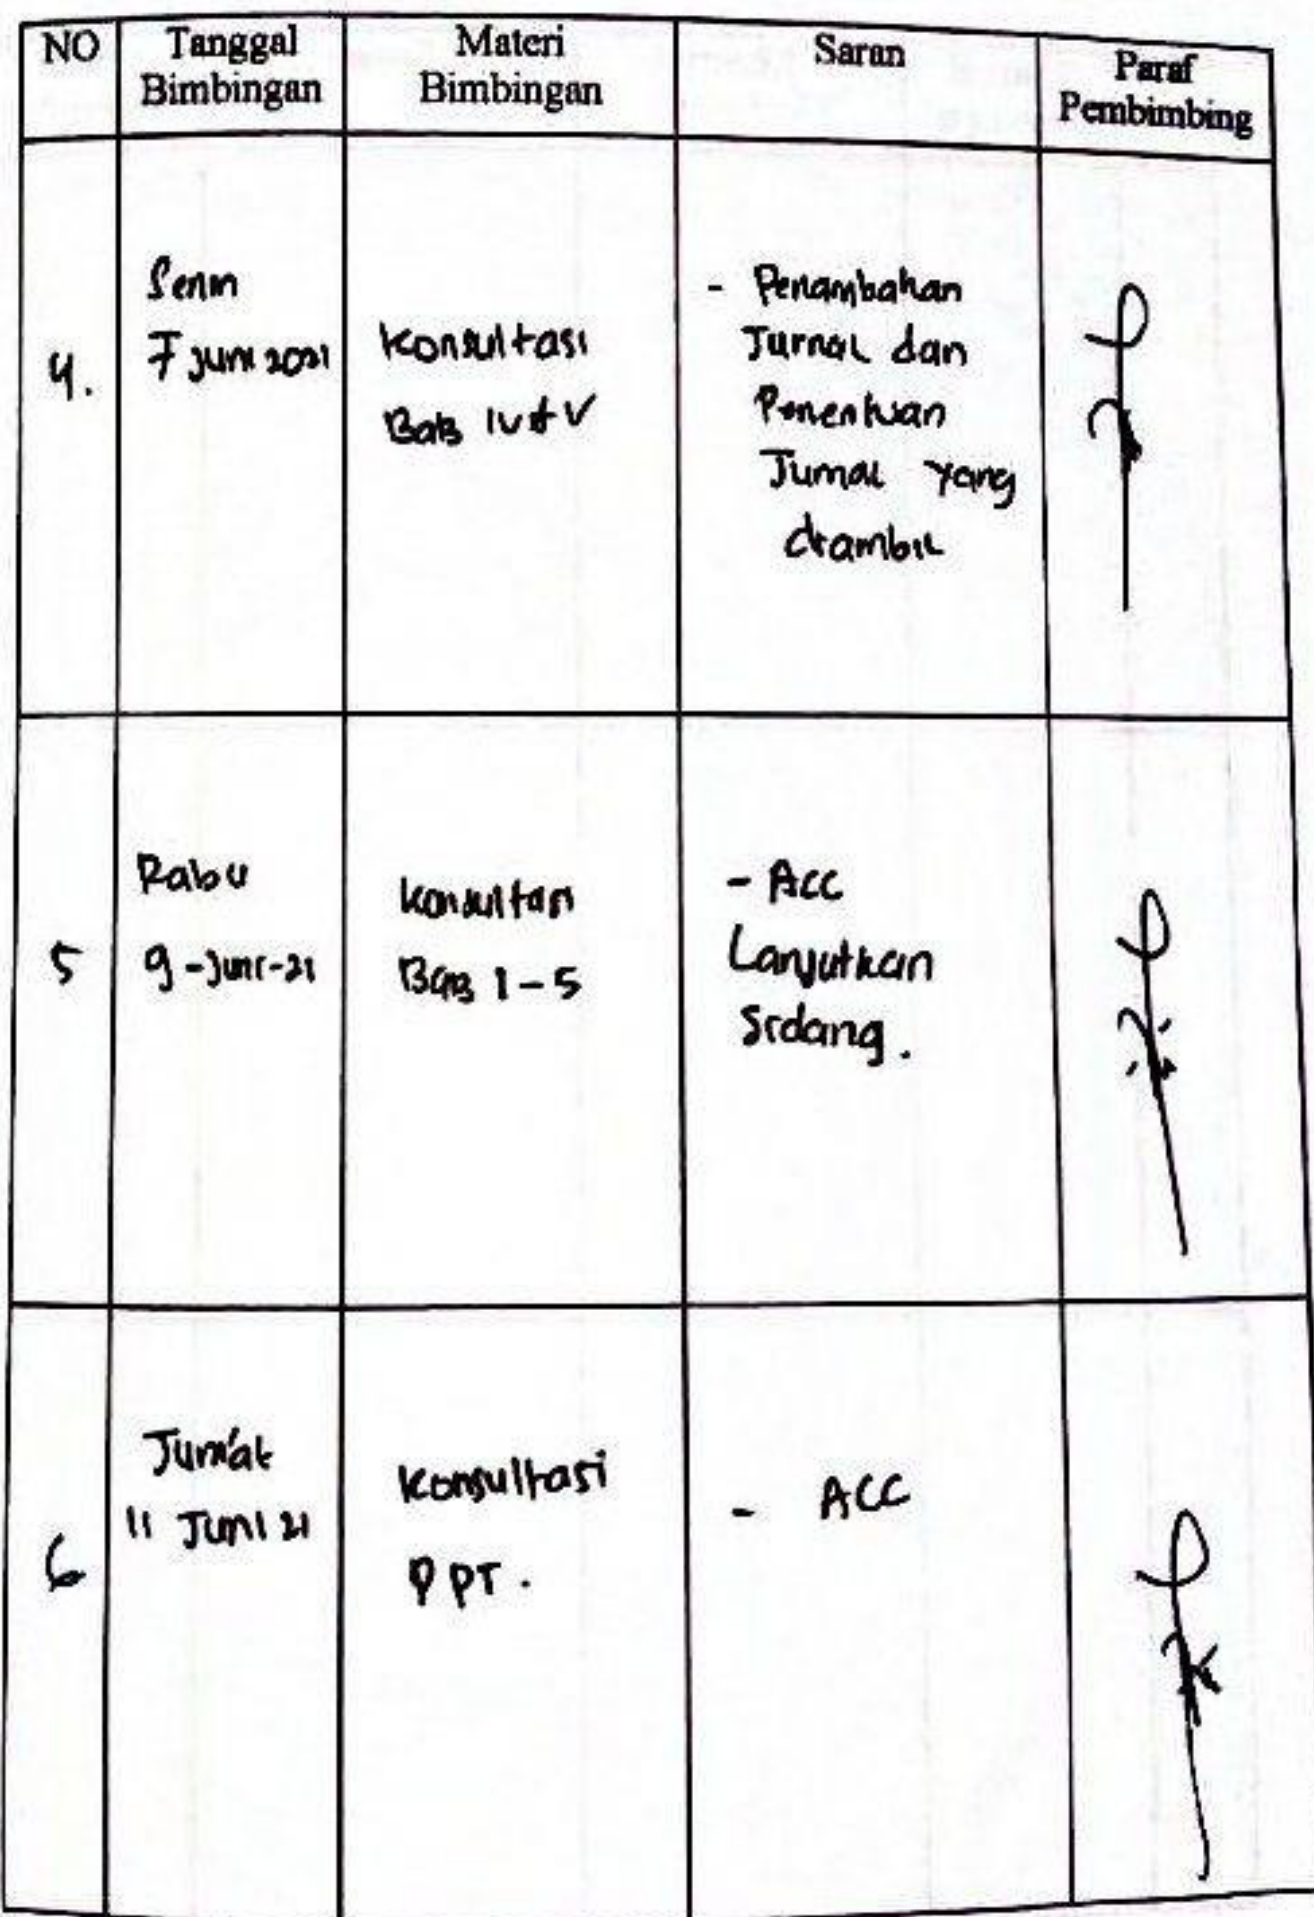 NO
Tanggal
Bimbingan
Materi
Bimbingan
Saran
Paraf
Pembimbing
4.
Senin
7 Juni 2021
Konsultasi
Bab IV & V
- Penambahan
Jurnal dan
Penentuan
Jurnal yang
diambil
5
Rabu
9-Juni-21
Konsultasi
Bab 1-5
- Acc
Lanjutkan
Sidang.
6
Jum'at
11 Juni 21
Konsultasi
PPT.
- ACC